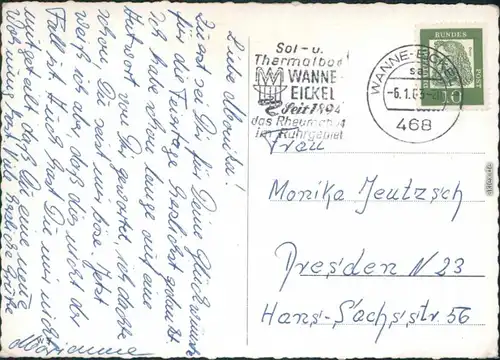 Liebe Monika!
Zuerst sei Du für Deine Glückwünsche
für die Feiertage herzlichst gedankt.
Ich habe schon lange auf eine
Antwort von Dir gewartet, ich dachte
schon Du seist mir böse. Jetzt
weiß ich aber daß das nicht der
Fall ist. Auch hast Du mir nicht
mitgeteilt, daß Du eine neue
Wohnung
Marianne
Sol- u.
Thermalbad
WANNE-
EICKEL
Seit 1894
das Rheumabad
im Ruhrgebiet
WANNE-EICKEL
-6.1.63
468
DEUTSCHE
BUNDES
POST
10
Frau
Monika Jeutzsch
Dresden N 23
Hans-Sachsstr. 56